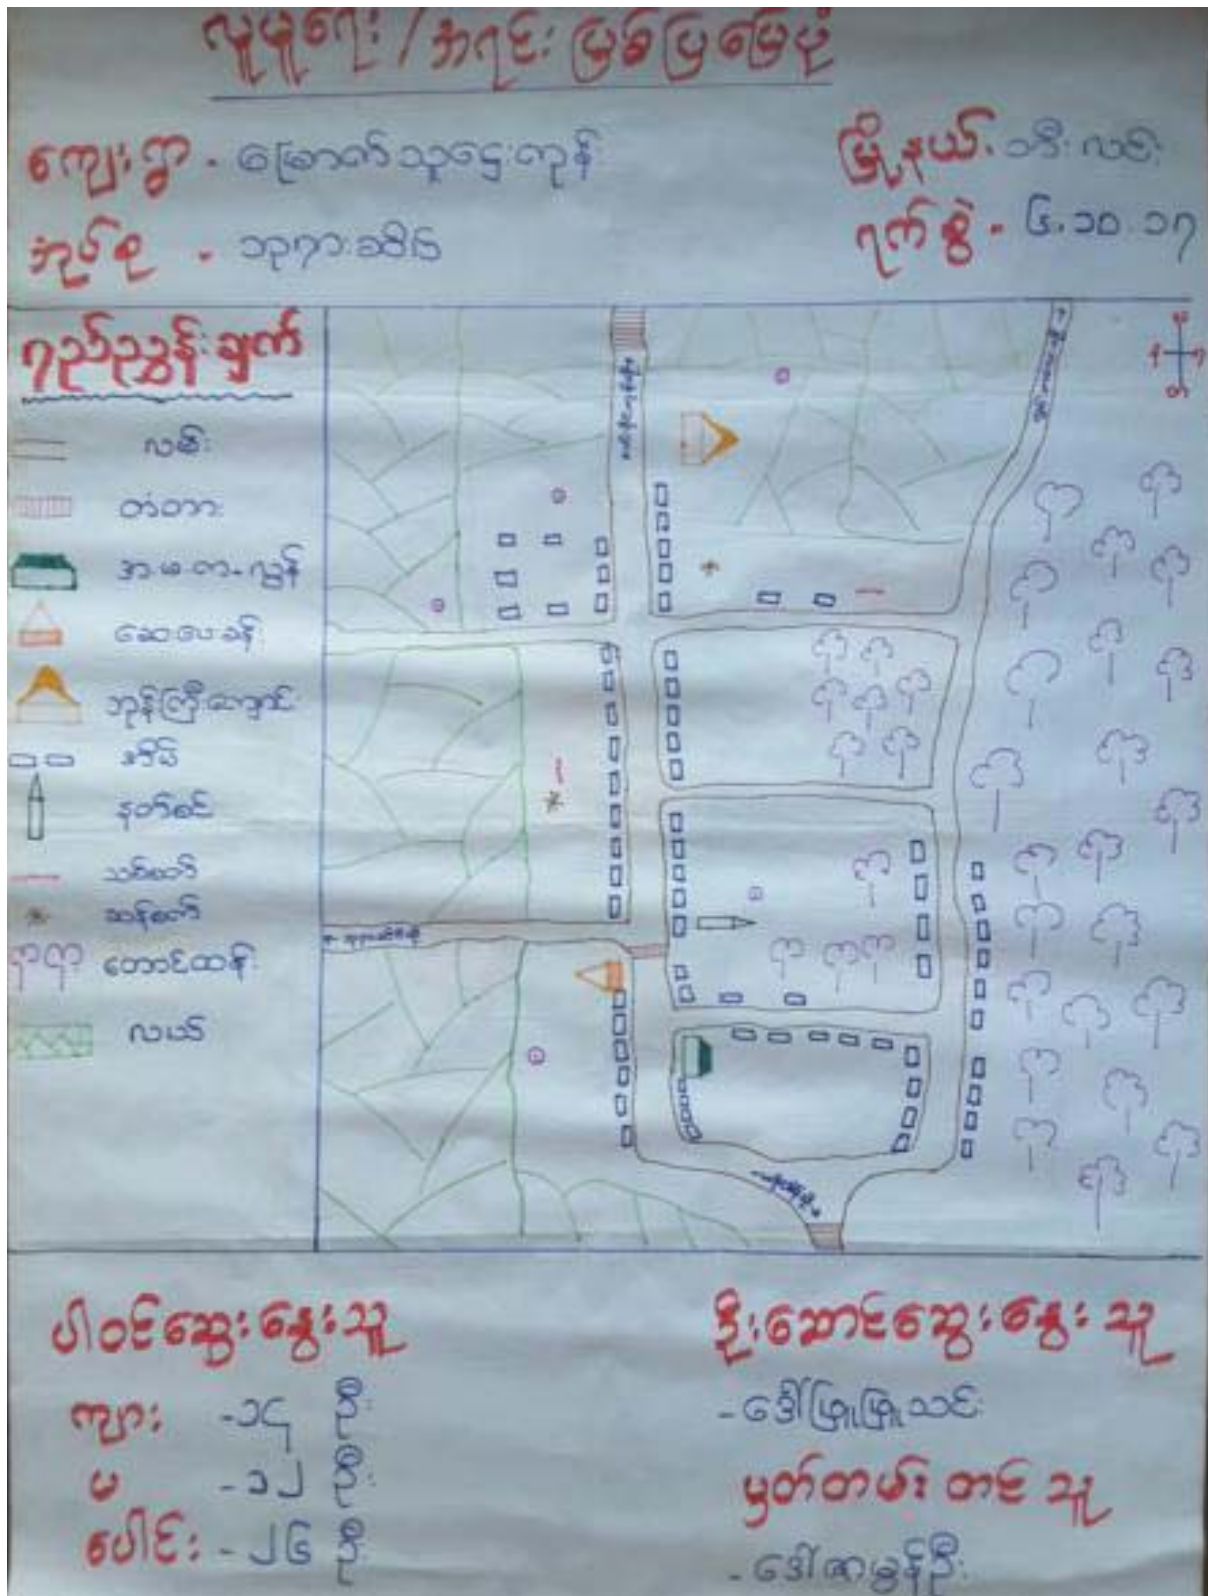 လူမှုရေး / အရင်းမြစ်ပြမြေပုံ
ကျေးရွာ - မြောက်သူဌေးကုန်း
မြို့နယ် - ဘီးလင်း
အုပ်စု -
ရက်စွဲ - ၆.၁၀.၁၇
ရည်ညွှန်းချက်
လမ်း
တံတား
အ.မ.က-လွန်
ဆေးပေးခန်း
ဘုန်းကြီးကျောင်း
အိမ်
နတ်စင်
သစ်စက်
ဆန်စက်
တောင်ထန်း
လယ်
ပါဝင်ဆွေးနွေးသူ
ကျား - ၁၄ ဦး
မ - ၁၂ ဦး
ပေါင်း - ၂၆ ဦး
ဦးဆောင်ဆွေးနွေးသူ
- ဒေါ်ဖြူဖြူသင်း
မှတ်တမ်းတင်သူ
- ဒေါ်ဇာမွန်ဦး